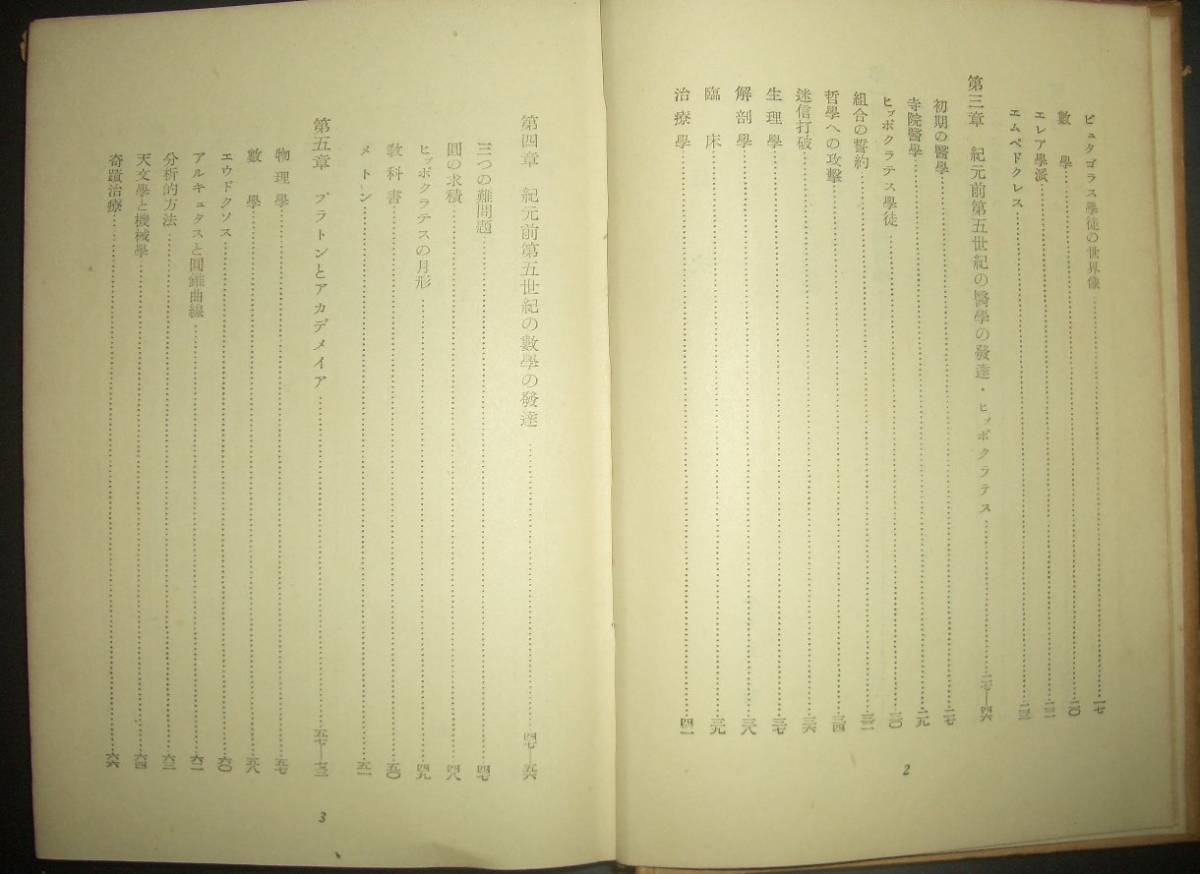 ピュタゴラス學徒の世界像……一七
數學……二〇
エレア學派……二二
エムペドクレス……二三
第三章 紀元前第五世紀の醫學の發達・ヒッポクラテス……二七―四六
初期の醫學……二七
寺院醫學……二九
ヒッポクラテス學徒……三〇
組合の誓約……三二
哲學への攻擊……三四
迷信打破……三六
生理學……三七
解剖學……三八
臨床……三九
治療學……四一
2
第四章 紀元前第五世紀の數學の發達……四七―五六
三つの難問題……四七
圓の求積……四八
ヒッポクラテスの月形……四九
敎科書……五〇
メトン……五一
第五章 プラトンとアカデメイア……五七―
物理學……五七
數學……五八
エウドクソス……六〇
アルキュタスと圓錐曲線……六二
分析的方法……六三
天文學と機械學……六四
奇蹟治療……六六
3